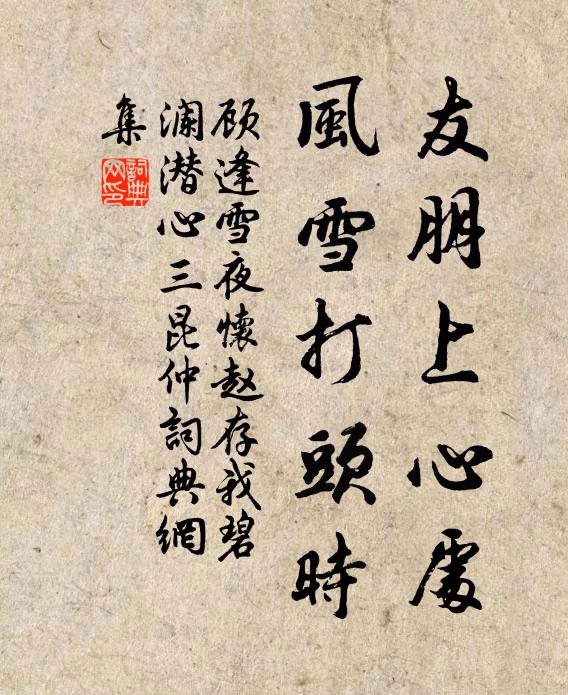 友朋上心處
風雪打頭時
顾逢雪夜懷赵存我碧
澜潜心三昆仲詞典網
集
詞典
网印